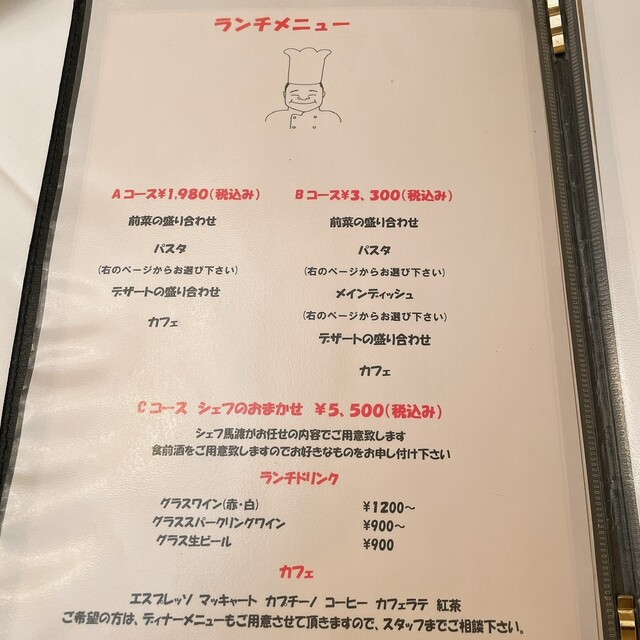 ランチメニュー
Aコース¥1,980(税込み)
前菜の盛り合わせ
パスタ
(右のページからお選び下さい)
デザートの盛り合わせ
カフェ
Bコース¥3、300(税込み)
前菜の盛り合わせ
パスタ
(右のページからお選び下さい)
メインディッシュ
(右のページからお選び下さい)
デザートの盛り合わせ
カフェ
Cコース シェフのおまかせ ¥5、500(税込み)
シェフ馬渡がお任せの内容でご用意致します
食前酒をご用意致しますのでお好きなものをお申し付け下さい
ランチドリンク
グラスワイン(赤・白) ¥1200～
グラススパークリングワイン ¥900～
グラス生ビール ¥900
カフェ
エスプレッソ マッキャート カプチーノ コーヒー カフェラテ 紅茶
ご希望の方は、ディナーメニューもご用意させて頂きますので、スタッフまでご相談下さい。